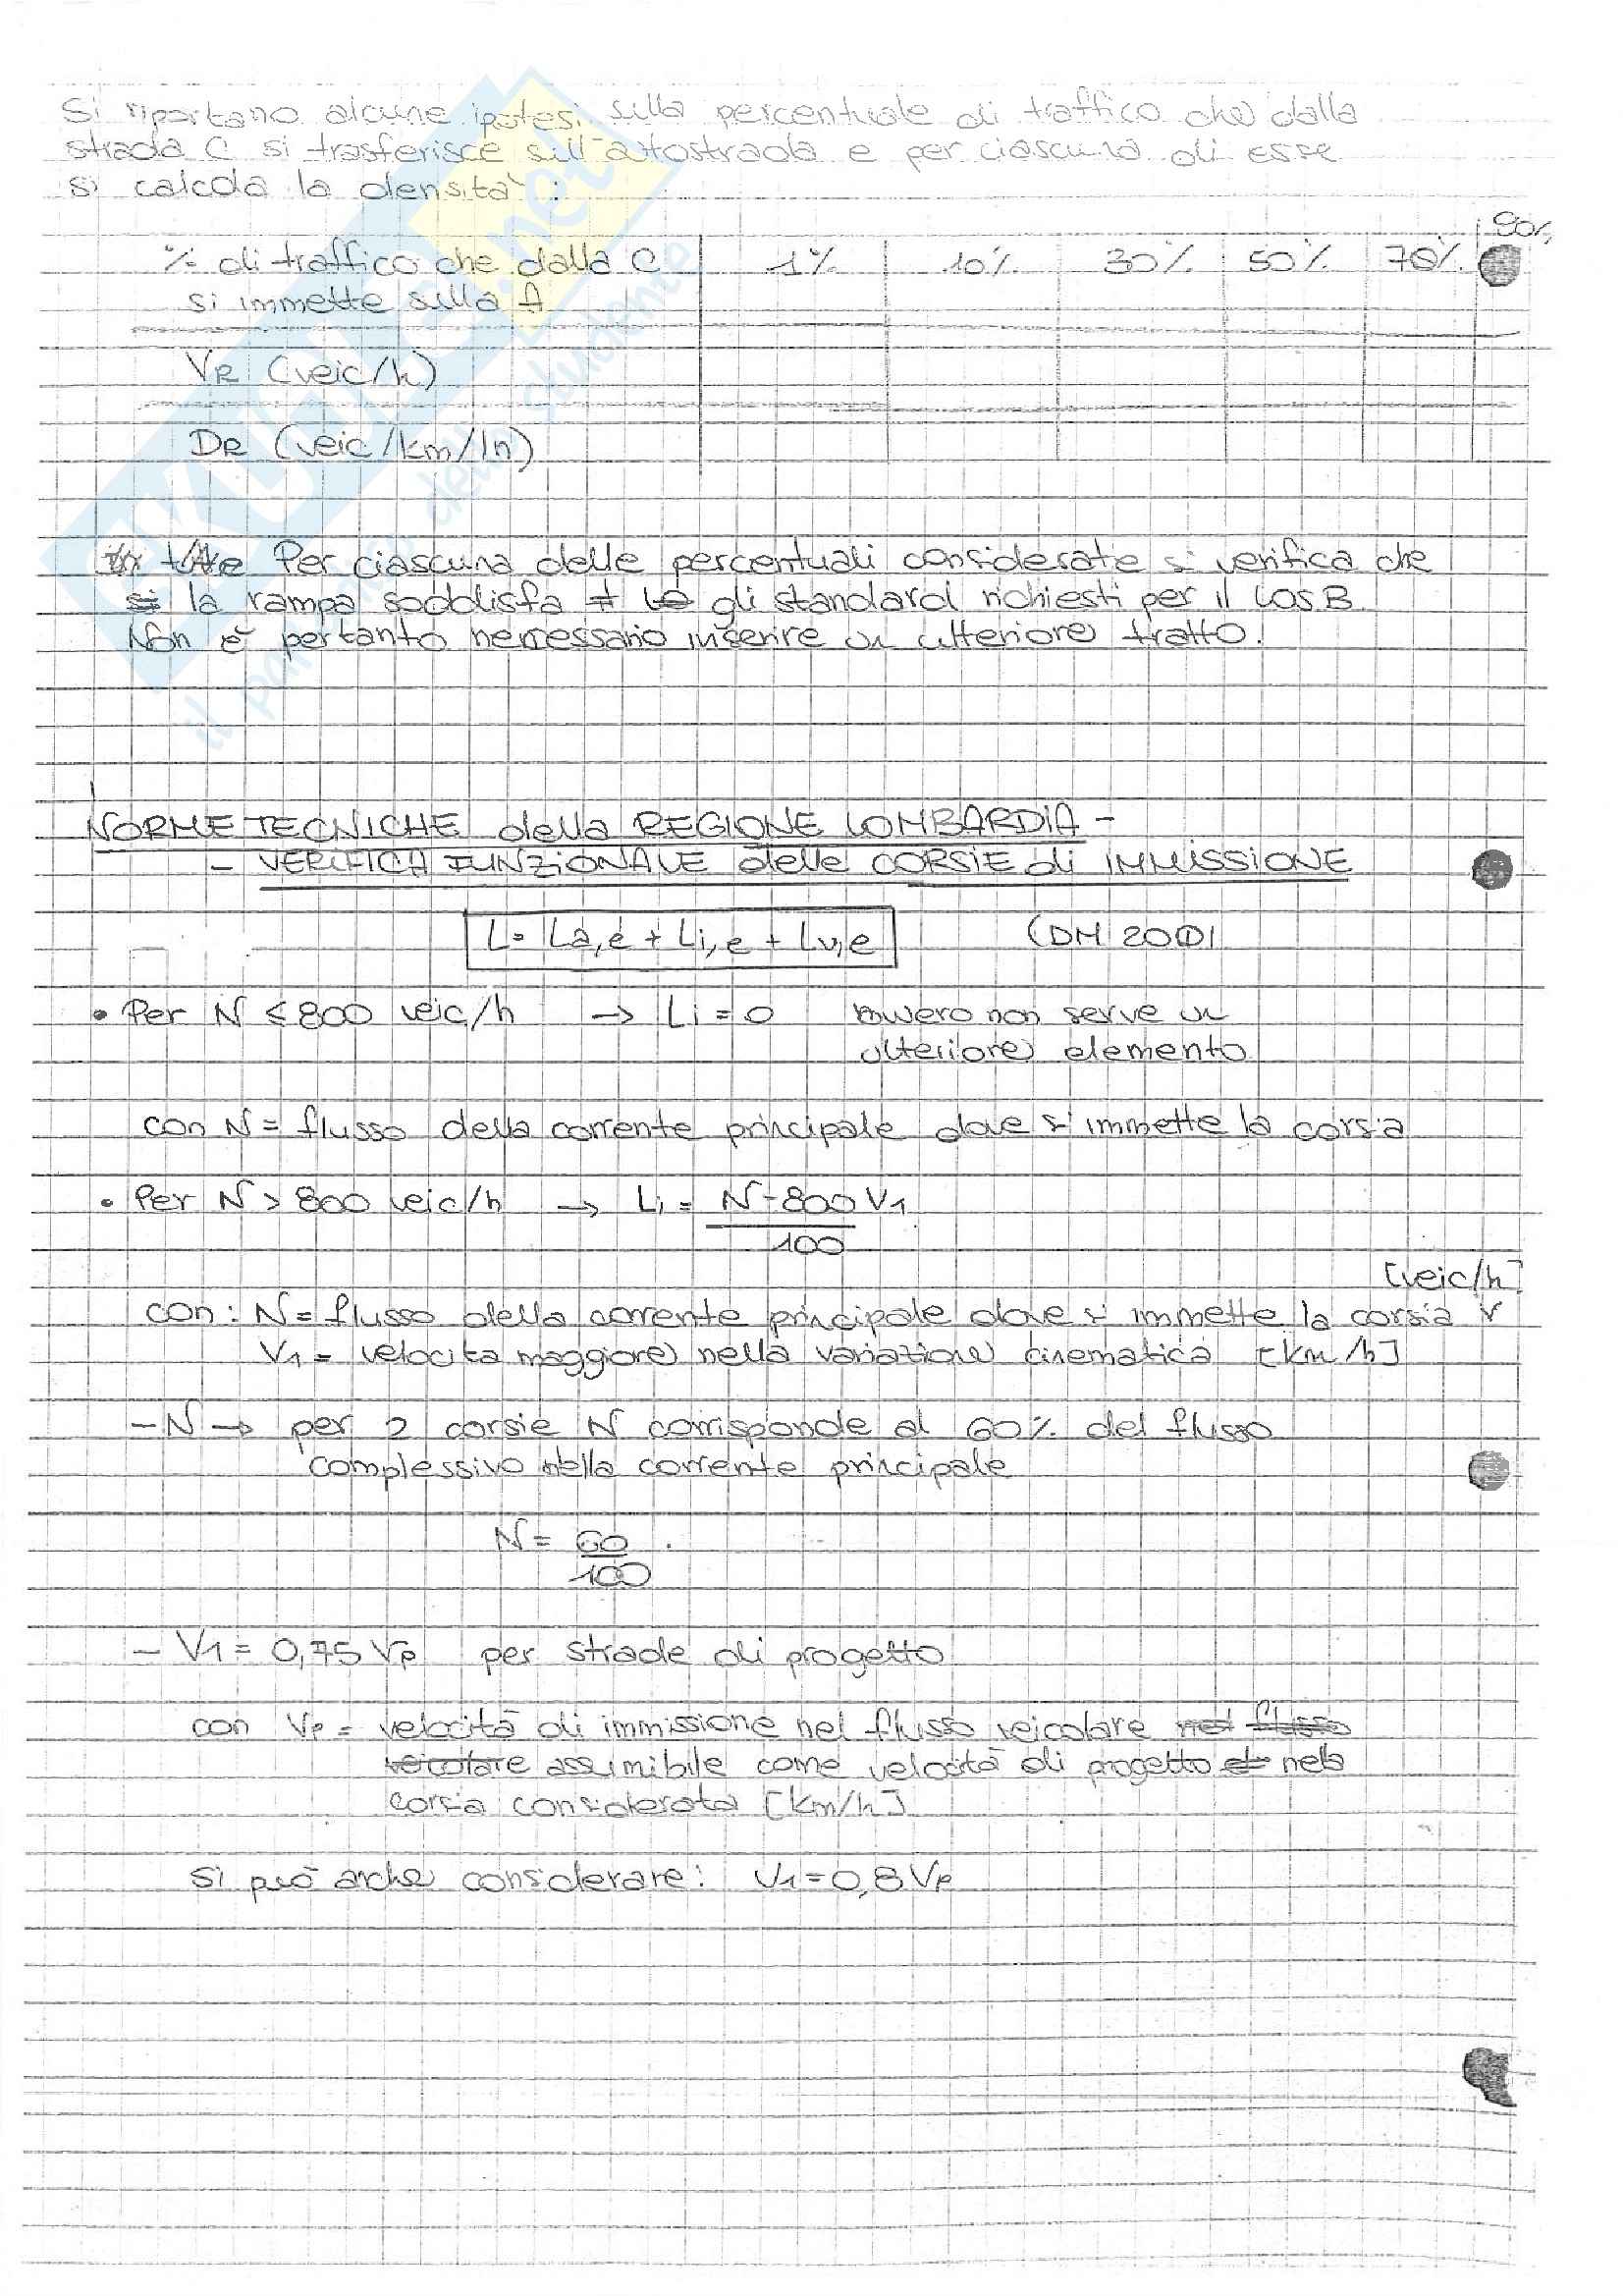 Si riportano alcune ipotesi sulla percentuale di traffico che dalla
strada C si trasferisce sull'autostrada e per ciascuna di esse
si calcola la densità :
90%
% di traffico che dalla C 1% 10% 30% 50% 70%
si immette sulla A
VR (veic/h)
DR (veic/km/ln)
Per ciascuna delle percentuali considerate si verifica che
la rampa soddisfa gli standard richiesti per il LOS B.
Non è pertanto necessario inserire un ulteriore tratto.
NORME TECNICHE della REGIONE LOMBARDIA -
- VERIFICA FUNZIONALE delle CORSIE di IMMISSIONE
L = La,e + Li,e + Lv,e (DM 2001)
• Per N ≤ 800 veic/h → Li = 0 ovvero non serve un
ulteriore elemento
con N = flusso della corrente principale dove si immette la corsia
• Per N > 800 veic/h → Li = N - 800 V1
100
[veic/h]
con: N = flusso della corrente principale dove si immette la corsia
V1 = velocita maggiore nella variazione cinematica [km/h]
- N → per 2 corsie N corrisponde al 60% del flusso
complessivo nella corrente principale
N = 60 .
100
- V1 = 0,75 Vp per strade di progetto
con Vp = velocità di immissione nel flusso veicolare nel flusso
veicolare assimibile come velocità di progetto nella
corsia considerata [km/h]
Si può anche considerare: V1 = 0,8 Vp
il paradiso dello studente